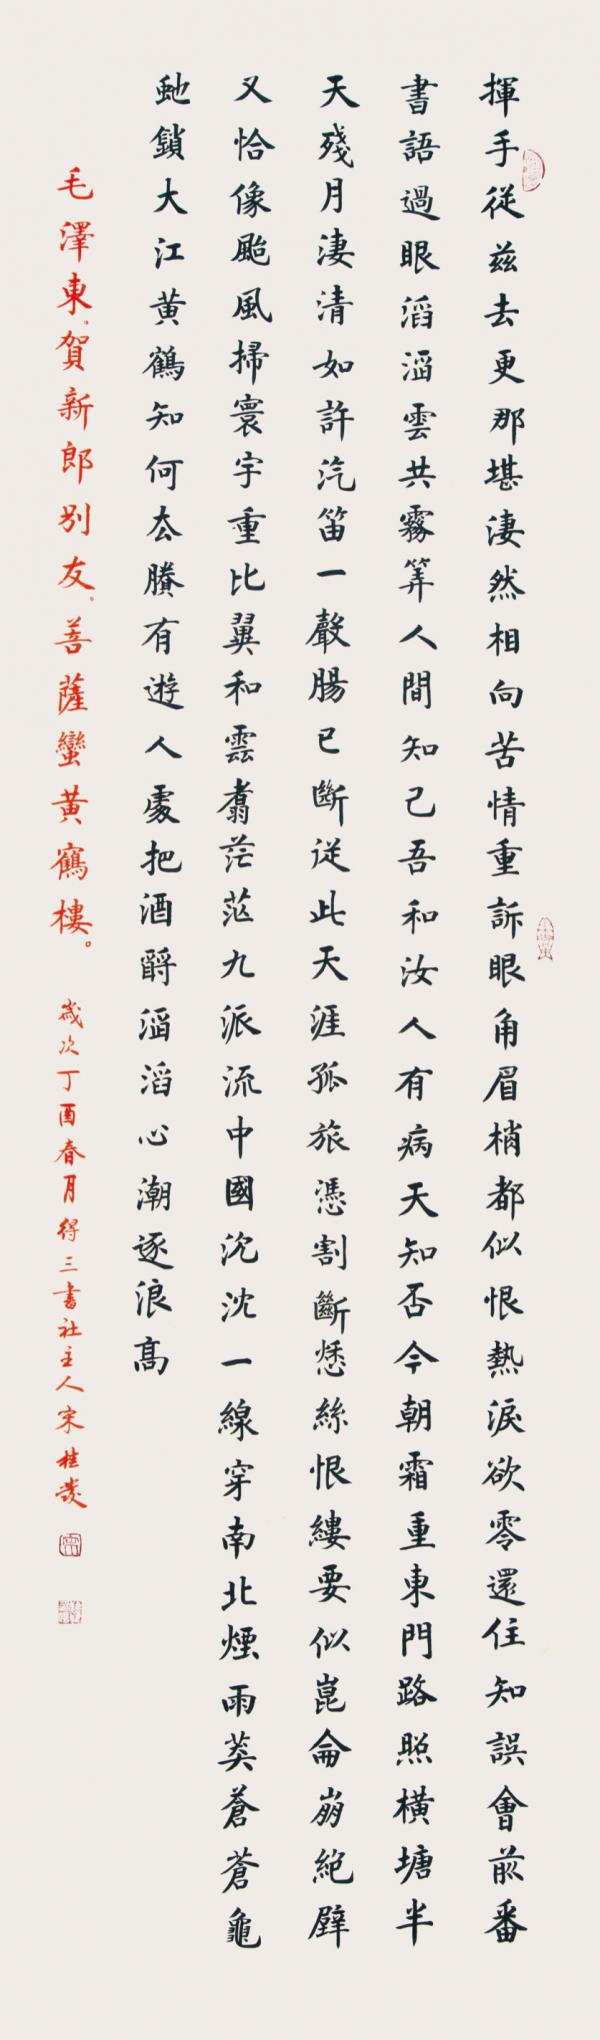 揮手從茲去更那堪淒然相向苦情重訴眼角眉梢都似恨熱淚欲零還住知誤會前番
書語過眼滔滔雲共霧筭人間知己吾和汝人有病天知否今朝霜重東門路照橫塘半
天殘月淒清如許汽笛一聲腸已斷從此天涯孤旅憑割斷愁絲恨縷要似崑崙崩絕壁
又恰像颱風掃寰宇重比翼和雲翥茫茫九派流中國沉沈一線穿南北煙雨莽蒼蒼龜
虵鎖大江黃鶴知何去賸有遊人處把酒酹滔滔心潮逐浪高
毛澤東。賀新郎別友。菩薩蠻黃鶴樓。
歲次丁酉春月得三書社主人宋桂發